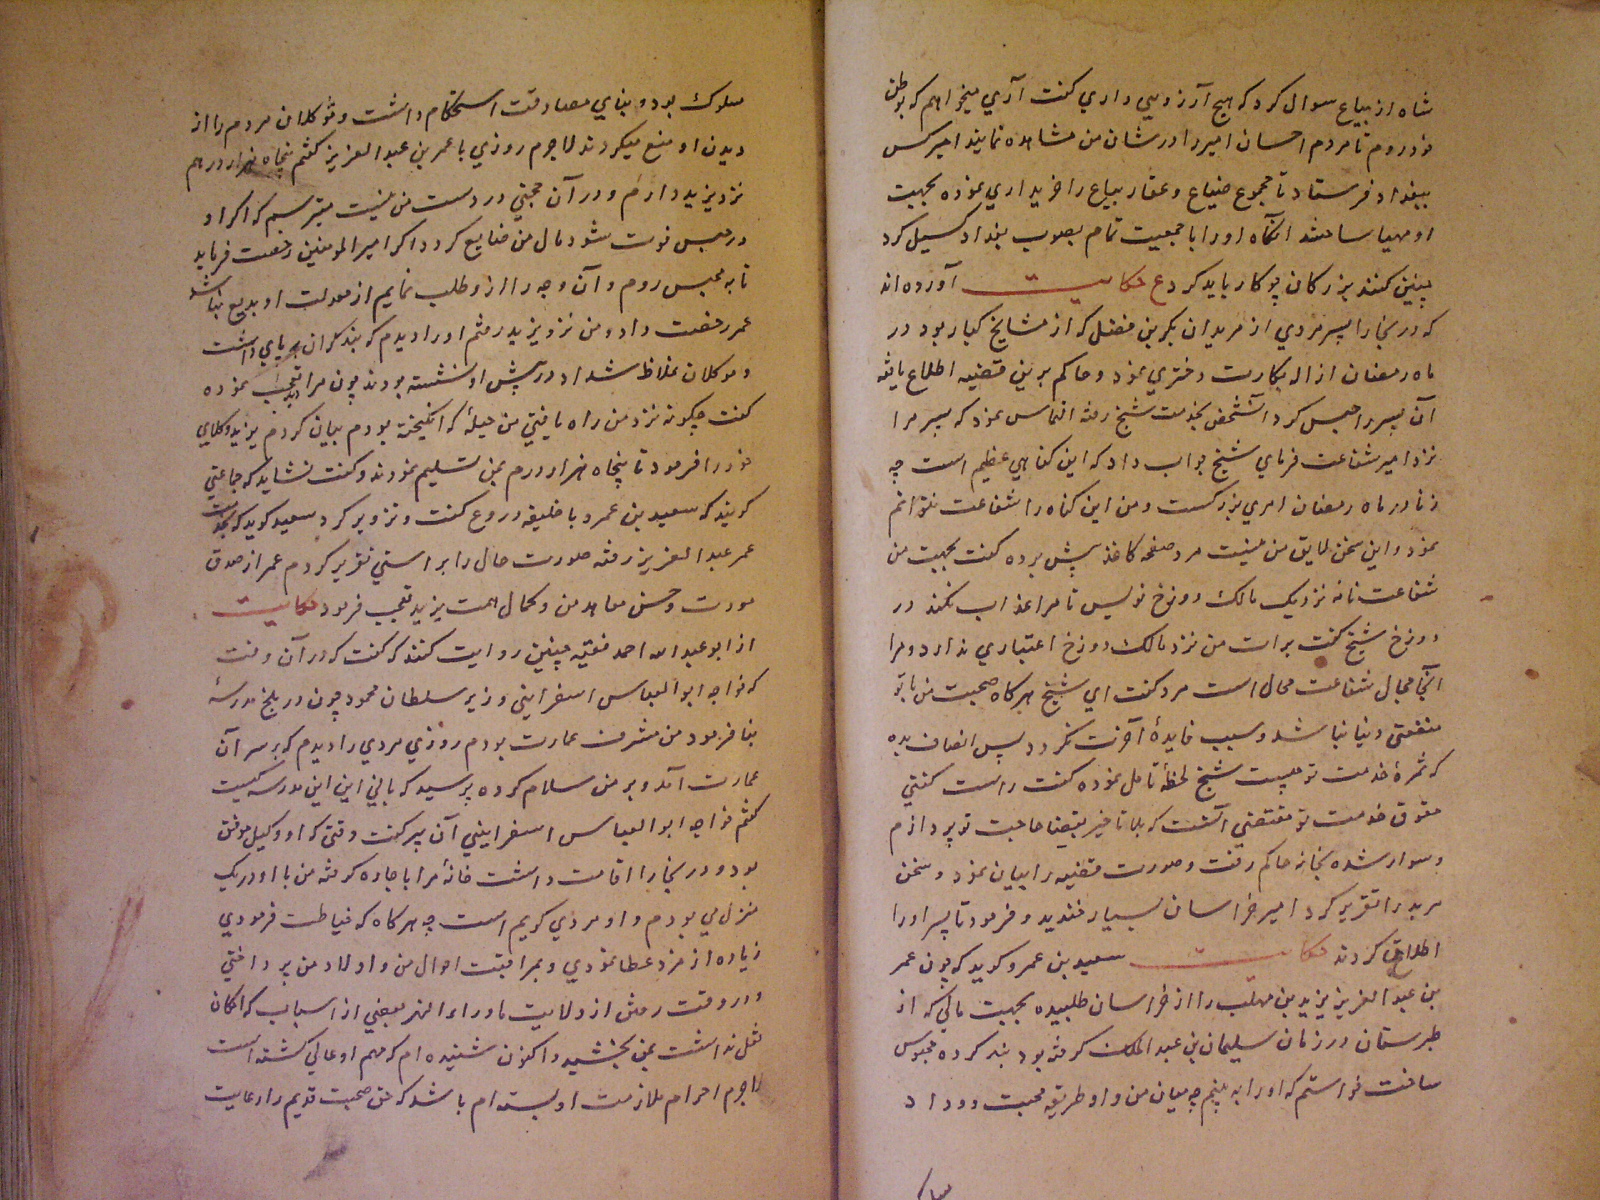 شاه از بیاع سوال کرد که هیچ آرزویی داری کفت آری میخواهم که بوطن
خود روم تا مردم احسان امیر را در شان من مشاهده نمایند امیر کس
ببغداد فرستاد تا مجموع ضیاع و عقار بیاع را خریداری نموده بجهت
او مهیا ساختند آنکاه او را با جمعیت تمام بصوب بغداد کسیل کرد
چنین کنند بزرکان چو کار باید کرد ع حکایت آورده اند
که در بخارا پسر مردی از مریدان بکر بن فضل که از مشایخ کبار بود در
ماه رمضان ازاله بکارت دختری نمود و حاکم برین قضیه اطلاع یافته
آن پسر را حبس کرد آنشخص بخدمت شیخ رفته التماس نمود که پسر مرا
نزد امیر شفاعت فرمای شیخ جواب داد که این کناهی عظیم است چه
زنا در ماه رمضان امری بزرکست و من این کناه را شفاعت نتوانم
نمود و این سخن لایق من نیست مرد صفحه کاغذ پیش برده کفت بجهت من
شفاعت نامه نزدیک مالک دوزخ نویس تا مرا عذاب نکند در
دوزخ شیخ کفت برات من نزد مالک دوزخ اعتباری ندارد و مرا
آنجا مجال شفاعت محال است مرد کفت ای شیخ هرکاه صحبت من با تو
منفعتی دنیا نباشد و سبب فایدهٔ آخرت نکردد پس انصاف بده
که ثمرهٔ خدمت تو چیست شیخ لحظهٔ تامل نموده کفت راست کفتی
حقوق خدمت تو مقتضی آنست که بلا تاخیر بقضا حاجت تو پردازم
و سوار شده بخانه حاکم رفت و صورت قضیه را بیان نمود و سخن
مرید را تقریر کرد امیر خراسان بسیار خندید و فرمود تا پسر او را
اطلاق کردند حکایت سعید بن عمرو کوید که چون عمر
بن عبد العزیز یزید بن مهلب را از خراسان طلبیده بجهت مالی که از
طبرستان در زمان سلیمان بن عبد الملک کرفته بود بند کرده محبوس
ساخت خواستم که او را به بینم چه میان من و او طریقه محبت و وداد
سلوک بود و بنای مصادقت استحکام داشت و موکلان مردم را از
دیدن او منع میکردند لاجرم روزی با عمر بن عبد العزیز کفتم پنجاه هزار درهم
نزد یزید دارم و در آن حجتی در دست من نیست میترسم که اکر او
در حبس فوت شود مال من ضایع کردد اکر امیر المومنین رخصت فرماید
تا به محبس روم و آن وجه را از و طلب نمایم از معدلت او بدیع نباشد
عمر رخصت داد و من نزد یزید رفتم او را دیدم که بند کران بر پای داشت
و موکلان غلاظ شداد در پیش او نشسته بودند چون مرا دید تعجب نموده
کفت چکونه نزد من راه یافتی من حیلهٔ که انکیخته بودم بیان کردم یزید وکلای
خود را فرمود تا پنجاه هزار درم بمن تسلیم نمودند و کفت نشاید که جماعتی
کویند که سعید بن عمرو با خلیفه دروغ کفت و تزویر کرد سعید کوید که بخدمت
عمر عبد العزیز رفته صورت حال را براستی تقریر کردم عمر از صدق
مودت و حسن معاهد من و کمال همت یزید تعجب فرمود حکایت
از ابو عبد الله احمد فقیه چنین روایت کنند که کفت که در آن وقت
که خواجه ابو العباس اسفراینی وزیر سلطان محمود چون در بلخ مدرسهٔ
بنا فرمود من مشرف عمارت بودم روزی مردی را دیدم که بر سر آن
عمارت آمد و بر من سلام کرده پرسید که بانی این این مدرسه کیست
کفتم خواجه ابو العباس اسفراینی آن پیر کفت وقتی که او وکیل موفق
بود و در بخارا اقامت داشت خانهٔ مرا باجاره کرفته من با او در یک
منزل می بودم و او مردی کریم است چه هرکاه که خیاطت فرمودی
زیاده از مزد عطا نمودی و بمراقبت احوال من و اولاد من پرداختی
و در وقت رفتن از ولایت ماوراء النهر بعضی از اسباب که امکان
نقل نداشت بمن بخشید و اکنون شنیده ام که مهم او عالی کشته است
لاجرم احرام ملازمت او بسته ام باشد که حق صحبت قدیم را رعایت